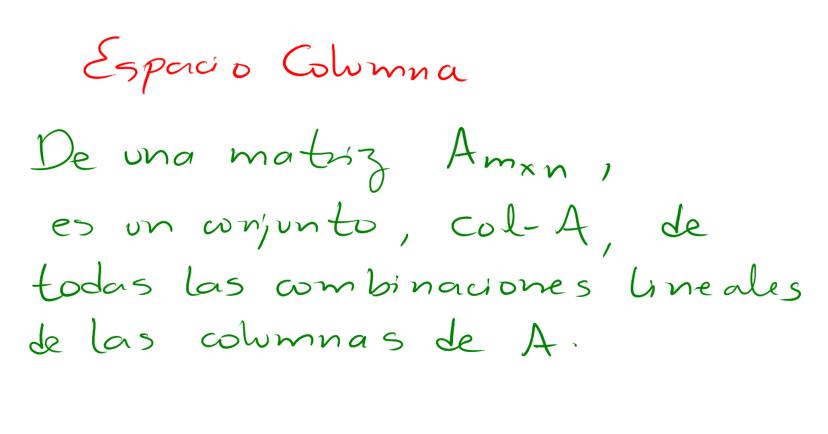 Espacio Columna
De una matriz Amxn,
es un conjunto, col-A, de
todas las combinaciones lineales
de las columnas de A.